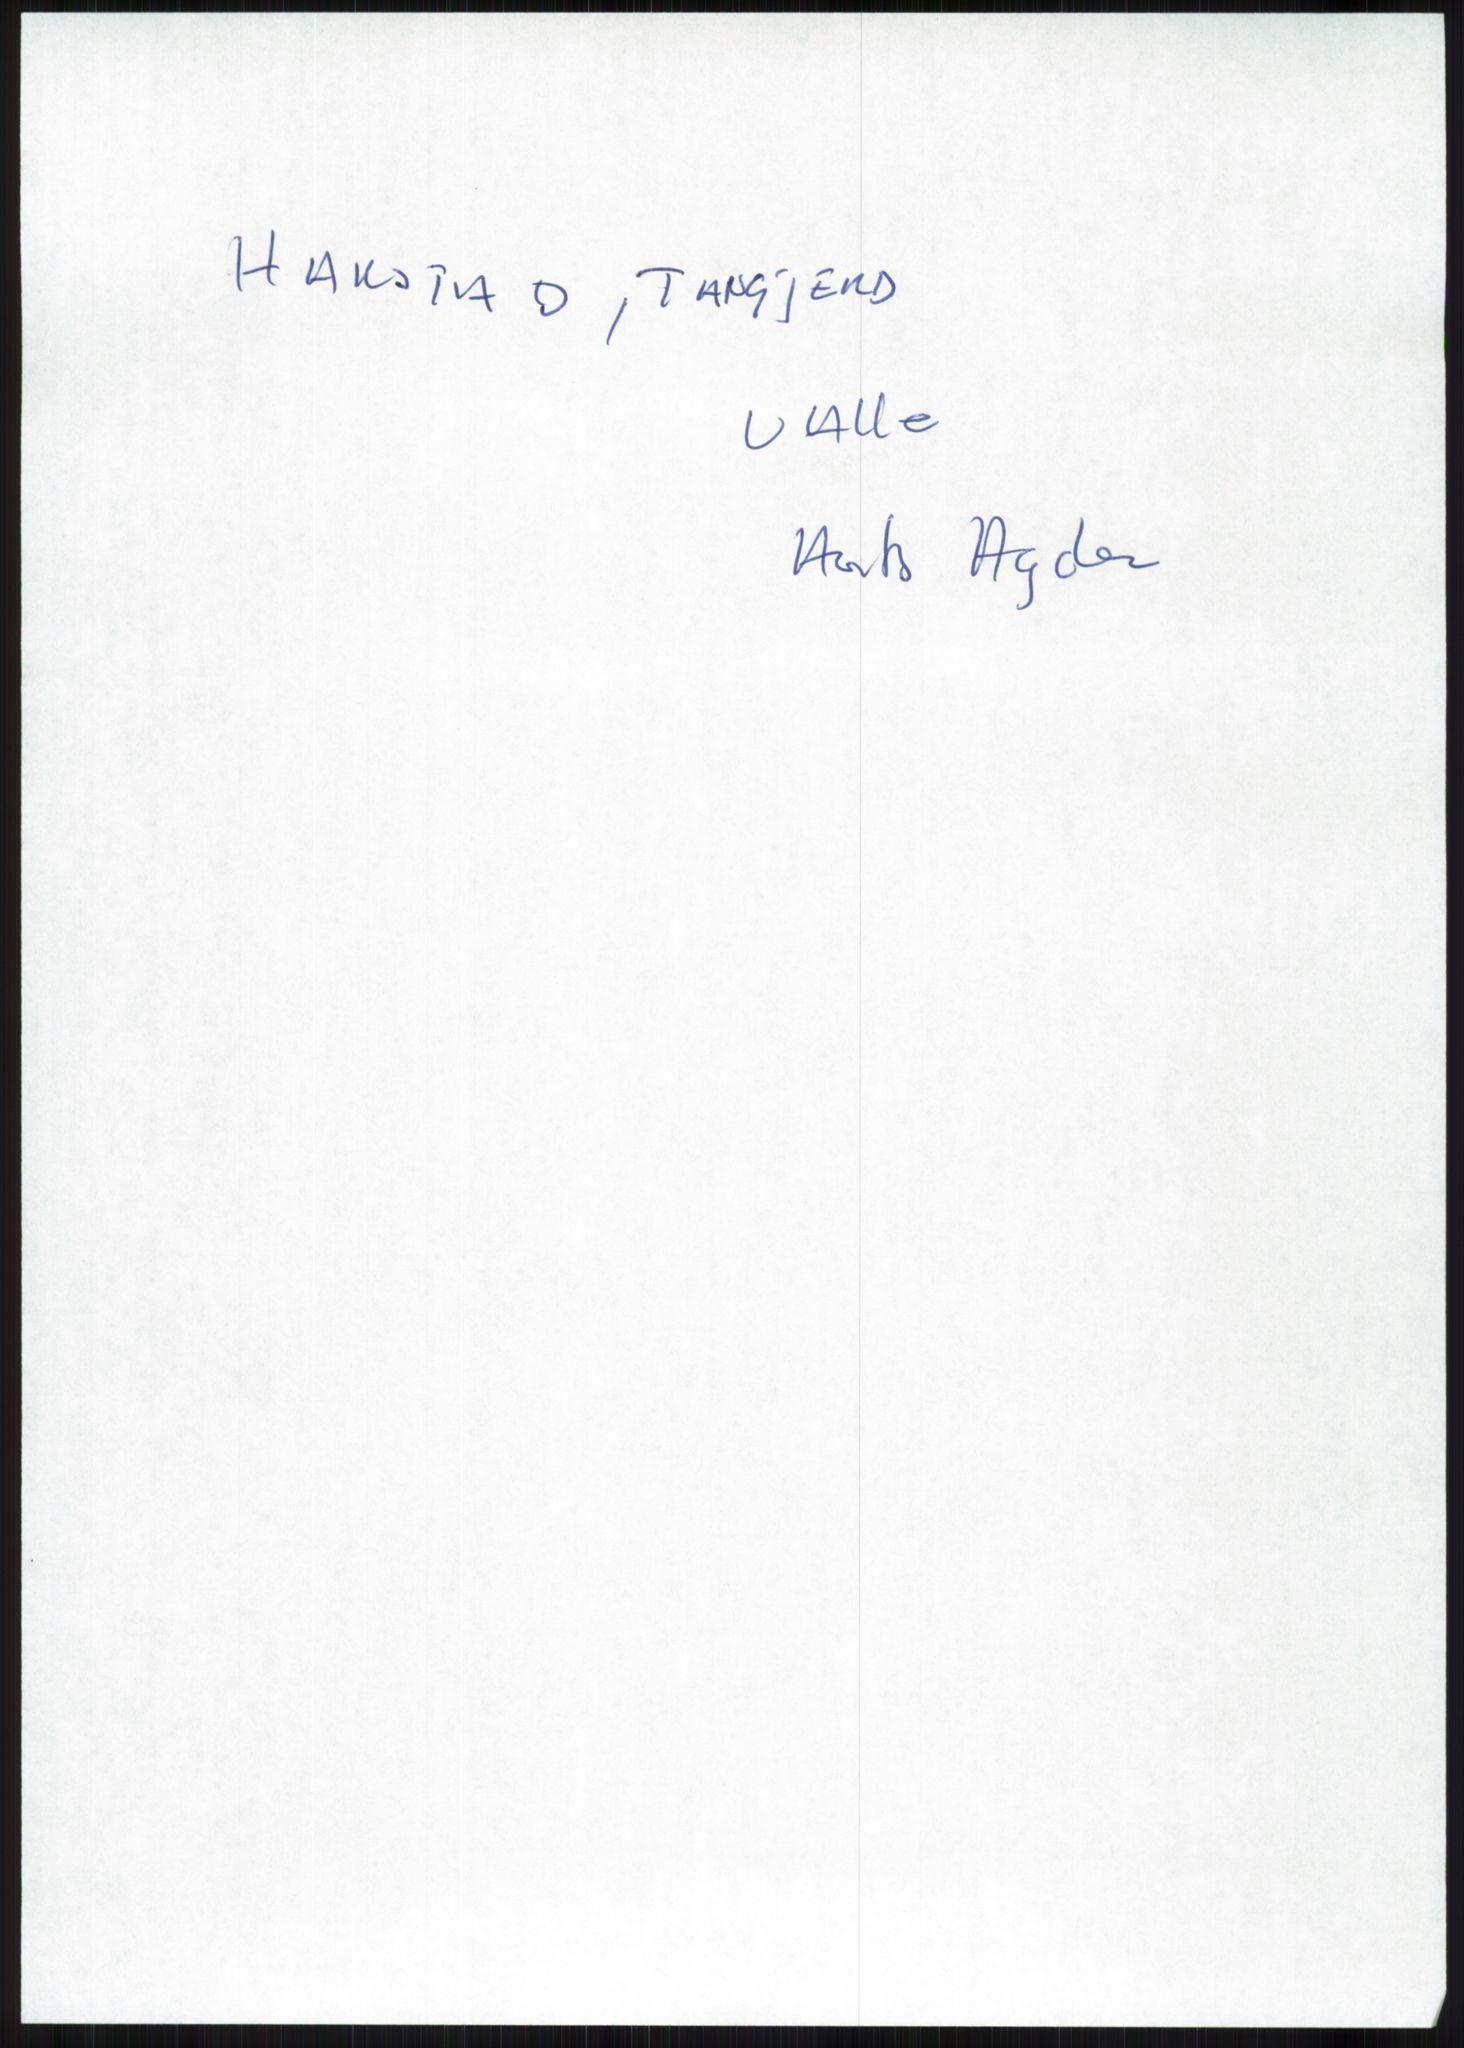 HARSTAD, TANGJERD
VALLE
Aust Agder